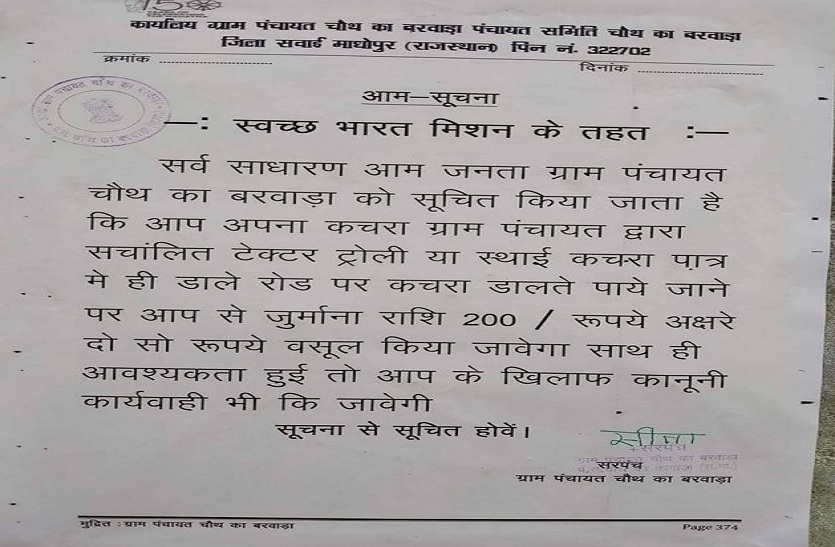 150
कार्यालय ग्राम पंचायत चौथ का बरवाड़ा पंचायत समिति चौथ का बरवाड़ा
जिला सवाई माधोपुर (राजस्थान) पिन नं. 322702
क्रमांक ........................
दिनांक ........................
आम–सूचना
–: स्वच्छ भारत मिशन के तहत :–
सर्व साधारण आम जनता ग्राम पंचायत
चौथ का बरवाड़ा को सूचित किया जाता है
कि आप अपना कचरा ग्राम पंचायत द्वारा
सचांलित टेक्टर ट्रोली या स्थाई कचरा पात्र
मे ही डाले रोड पर कचरा डालते पाये जाने
पर आप से जुर्माना राशि 200 / रूपये अक्षरे
दो सो रूपये वसूल किया जावेगा साथ ही
आवश्यकता हुई तो आप के खिलाफ कानूनी
कार्यवाही भी कि जावेगी
सूचना से सूचित होवें।
सीमा
सरपंच
सरपंच
ग्राम पंचायत चौथ का बरवाड़ा
मुद्रित : ग्राम पंचायत चौथ का बरवाड़ा
Page 374